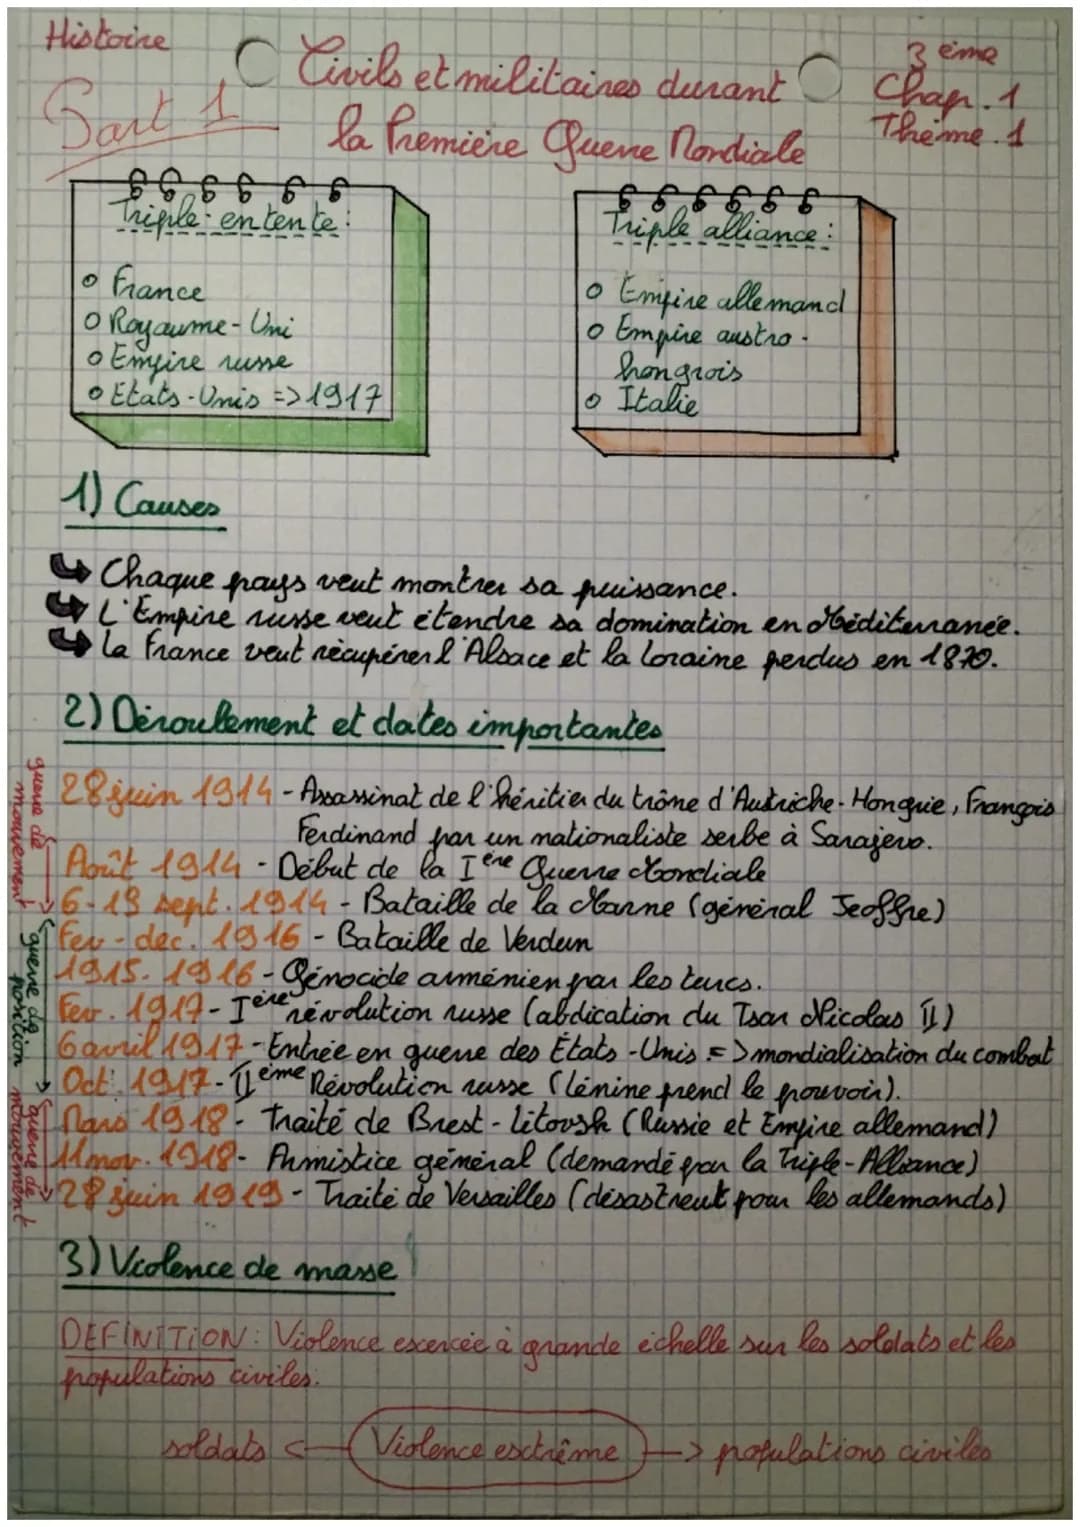 Histoire
3 ème
Civils et militaires durant
Chap. 1
Part 1
la Première Guerre Mondiale
Thème. 1
Triple-entente:
o France
o Royaume-Uni
o Empire russe
o Etats-Unis => 1917
Triple alliance:
o Empire allemand
o Empire austro-
hongrois
o Italie
1) Causes
Chaque pays veut montrer sa puissance.
L'Empire russe veut étendre sa domination en Méditerranée.
La France veut récupérer l'Alsace et la Loraine perdus en 1870.
2) Déroulement et dates importantes
guerre de mouvement
28 juin 1914 - Assassinat de l'héritier du trône d'Autriche-Hongrie, François
Ferdinand par un nationaliste serbe à Sarajevo.
Août 1914 - Début de la Ière Guerre Mondiale
6-13 sept. 1914 - Bataille de la Marne (général Jeoffre)
guerre de position
Fev - dec. 1916 - Bataille de Verdun
1915-1916 - Génocide arménien par les turcs.
Fev. 1917 - Ière révolution russe (abdication du Tsar Nicolas II)
6 avril 1917 - Entrée en guerre des États-Unis => mondialisation du combat
Oct. 1917 - IIème Révolution russe (Lénine prend le pouvoir).
guerre de mouvement
Mars 1918 - Traité de Brest-Litovsk (Russie et Empire allemand)
11 nov. 1918 - Armistice général (demandé par la Triple-Alliance)
28 juin 1919 - Traité de Versailles (désastreux pour les allemands)
3) Violence de masse
DEFINITION: Violence excercée à grande échelle sur les soldats et les
populations civiles.
soldats <- Violence exctrême -> populations civiles